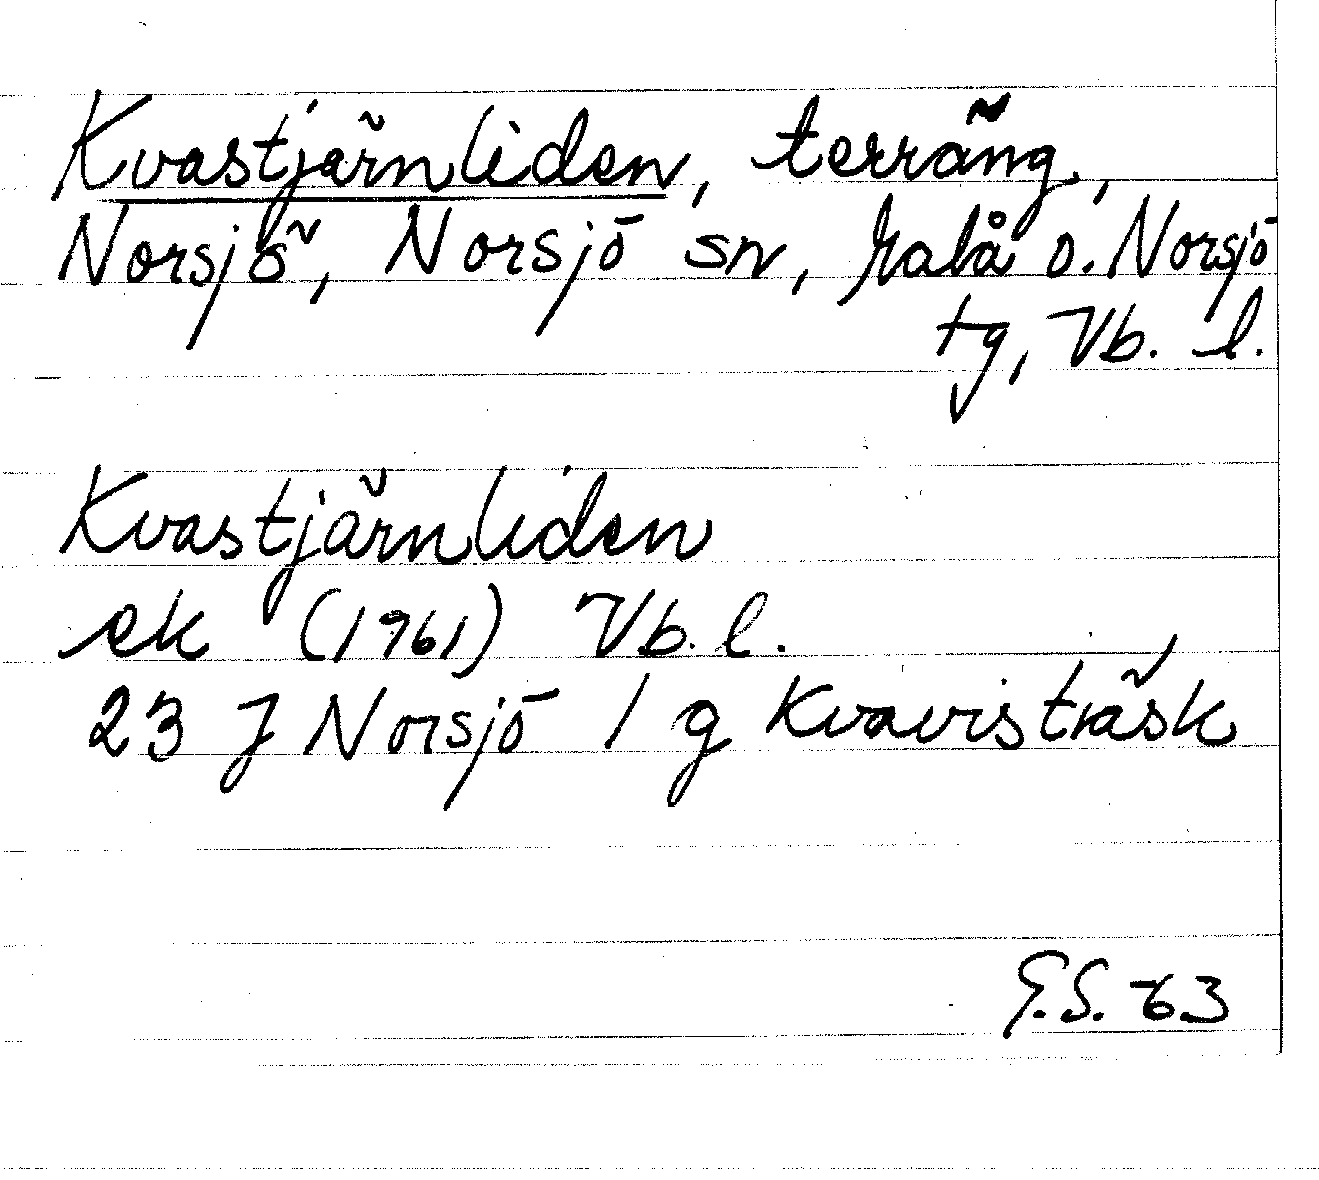 Kvastjärnliden, terräng,
Norsjö, Norsjö sn, Malå o. Norsjö
tg, Vb. l.
Kvastjärnliden
ek (1961) Vb. l.
23 J Norsjö 1 g Kvavisträsk
G.S. 63